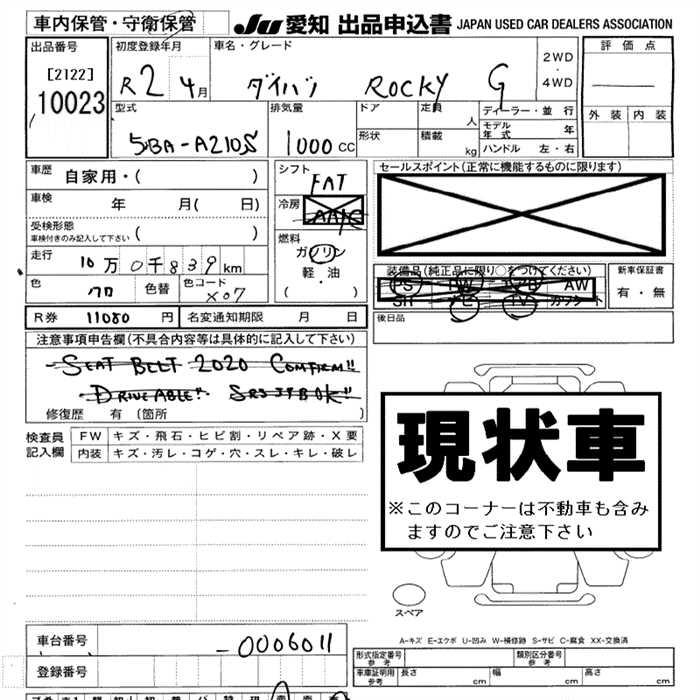 車内保管・守衛保管 JU 愛知 出品申込書 JAPAN USED CAR DEALERS ASSOCIATION
出品番号 初度登録年月 車名・グレード 2WD ・ 4WD 評価点
[2122] R2 4月 ダイハツ ROCKY G
10023
外装 内装
型式 排気量 ドア 定員 人 ディーラー・並行
5BA-A210S 1000 CC 形状 積載 kg モデル年式 年
ハンドル 左・右
車歴 自家用・( ) シフト FAT セールスポイント(正常に機能するものに限ります)
車検 年 月( 日) 冷房 AAC
受検形態 ( )
車検付きのみ記入して下さい
燃料 ガソリン
軽・油
( )
走行 10万0千839km
装備品(純正品に限り○をつけてください) 新車保証書
PS PW AW 有・無
SR ナビ TV カワシート
色 色替 色コード X07
R券 11080円 名変通知期限 月 日 後日品
注意事項申告欄(不具合内容等は具体的に記入して下さい)
SEAT BELT 2020 CONFIRM!!
DRIVEABLE!!
修復歴 有 (箇所 )
検査員記入欄 FW キズ・飛石・ヒビ割・リペア跡・X要
内装 キズ・汚レ・コゲ・穴・スレ・キレ・破レ
現状車
※このコーナーは不動車も含み
ますのでご注意下さい
スペア
A-キズ E-エクボ U-凹み W-補修跡 S-サビ C-腐食 XX-交換済
車台番号 -0006011
登録番号
形式指定番号 参考 類別区分番号 参考
車庫証明用 参考 長さ cm 幅 cm 高さ cm